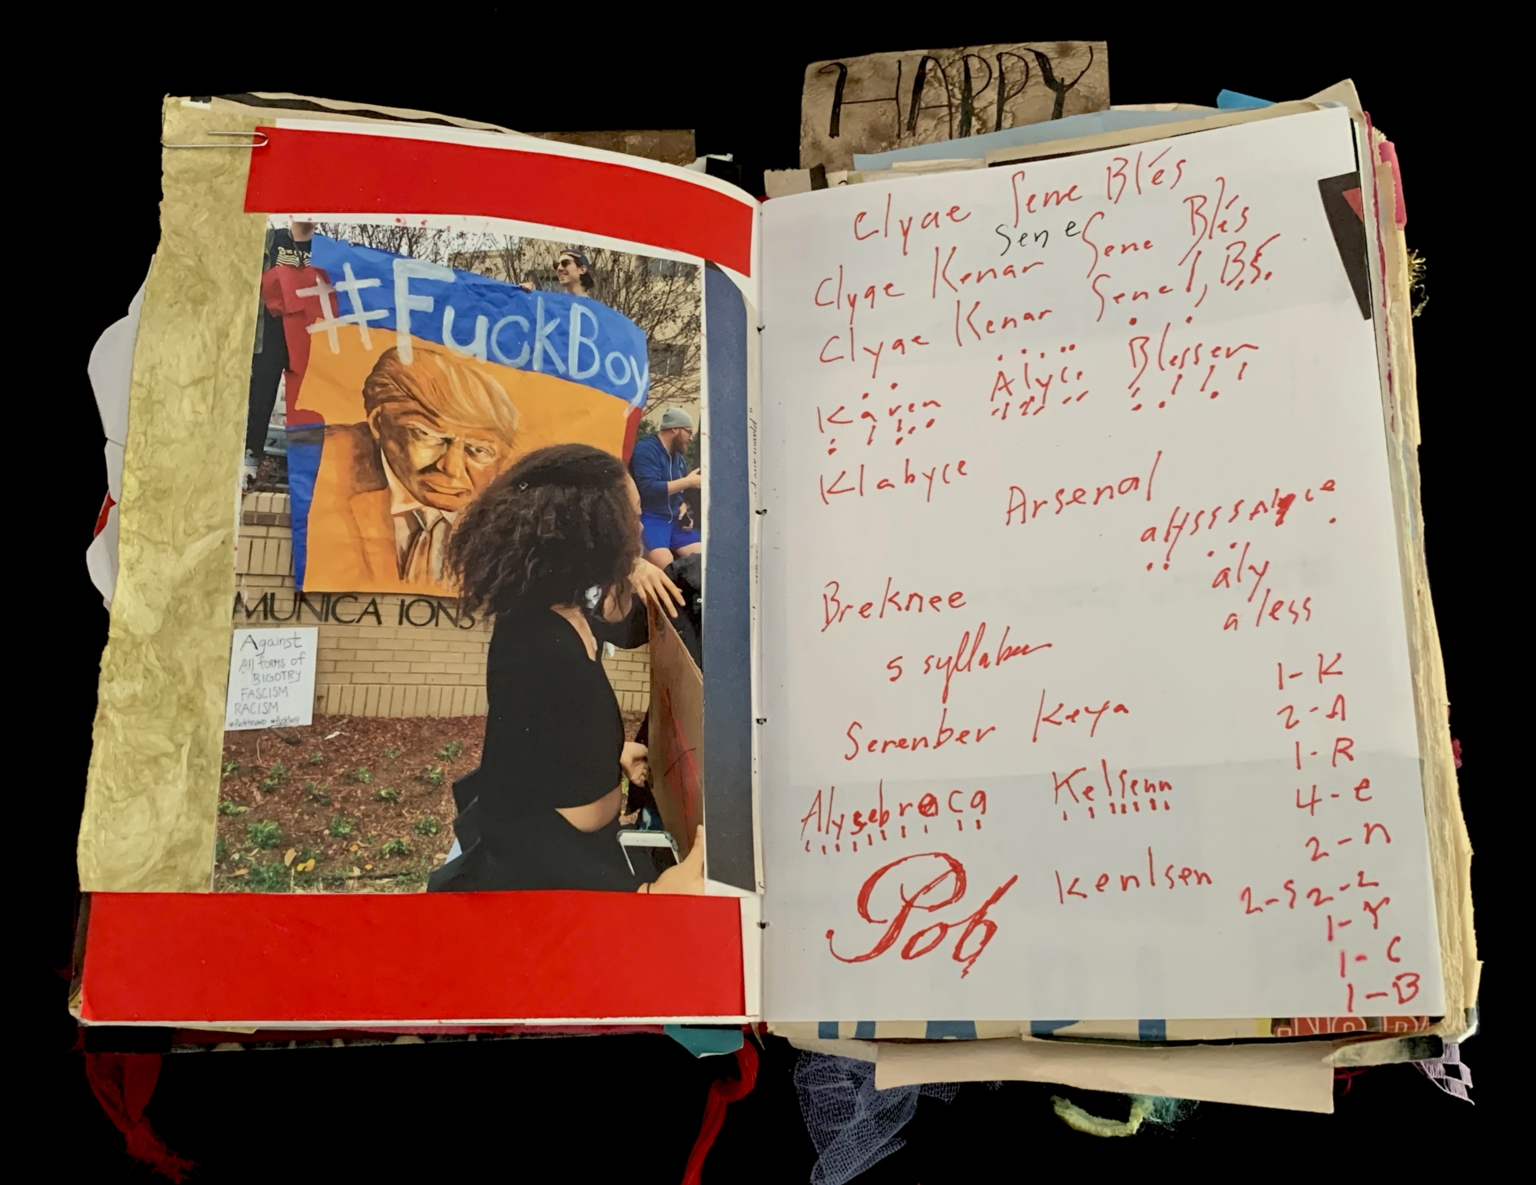 HAPPY
#FuckBoy
MUNICA IONS
Against
All forms of
BIGOTRY
FASCISM
RACISM
Clyae Sene Blés
Sene
Clyae Kenar Sene Blés
Clyae Kenar Senel, B.S.
Karen Alyce Blessen
Klabyce
Arsenal
alysssalyce
aly
Breknee
aless
5 syllabes
1-K
Serenber Keya
2-A
1-R
Alysebraca Kelsenn
4-e
2-n
Kenlsen
2-S 2-L
Pob
1-Y
1-C
1-B